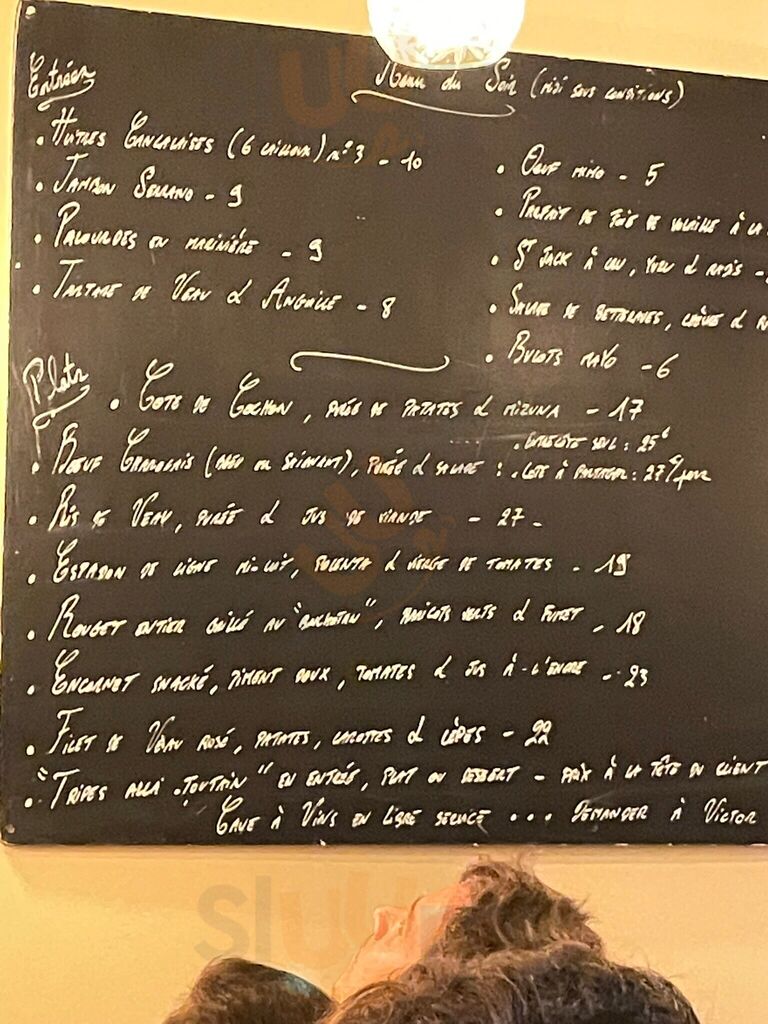 Entrées
Menu du Soir (midi sous conditions)
• Huîtres Cancalaises (6 cailloux) n°3 - 10
• Jambon Serrano - 9
• Palourdes en marinière - 9
• Tartare de Veau & Anguille - 8
• Oeuf mimo - 5
• Parfait de foie de volaille à la
• St Jack à cru, yuzu & radis -
• Salade de betteraves, chèvre &
• Bulots mayo - 6
Plats
• Cote de Cochon, purée de patates & mizuna - 17
• Boeuf Charolais (bleu ou saignant), purée & salade :
• Entrecôte seul : 25€
• Cote à partager : 27€/pers
• Ris de Veau, purée & jus de viande - 27 -
• Espadon de ligne mi-cuit, polenta & vierge de tomates - 19
• Rouget entier grillé au , haricots verts & fumet - 18
• Encornet snacké, piment doux, tomates & jus à l'encre - 23
• Filet de Veau rosé, patates, carottes & cèpes - 22
• "Tripes alla Toutain" en entrée, plat ou dessert - prix à la tête du client
Cave à Vins en libre service ... Demander à Victor
Sluurpy